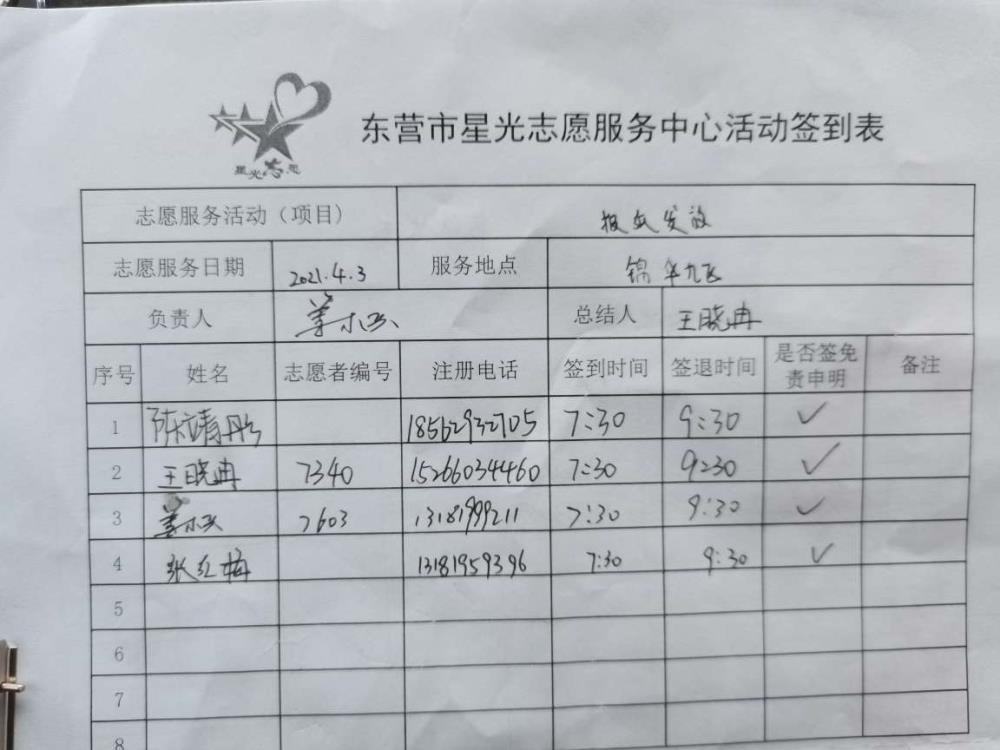 星光志愿
东营市星光志愿服务中心活动签到表
志愿服务活动（项目） 报点发放
志愿服务日期 2021.4.3 服务地点 锦华九区
负责人 姜小 总结人 王晓冉
序号 姓名 志愿者编号 注册电话 签到时间 签退时间 是否签免责申明 备注
1 陈靖彤 18562932705 7:30 9:30 ✓
2 王晓冉 7340 15266034460 7:30 9:30 ✓
3 姜小 7603 13181999211 7:30 9:30 ✓
4 张红梅 13181959396 7:30 9:30 ✓
5
6
7
8